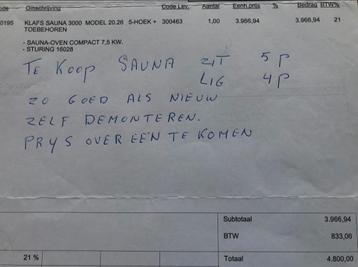 ode Omschrijving Code Lev. Aantal Eenh.prijs % Bedrag BTW%
0195 KLAFS SAUNA 3000 MODEL 20.26 5-HOEK + 300463 1,00 3.966,94 3.966,94 21
TOEBEHOREN
- SAUNA-OVEN COMPACT 7,5 KW.
- STURING 16028
TE KOOP SAUNA ZIT 5 P
LIG 4 P
ZO GOED ALS NIEUW
ZELF DEMONTEREN.
PRYS OVER EEN TE KOMEN
Subtotaal 3.966,94
BTW 833,06
21 % Totaal 4.800,00